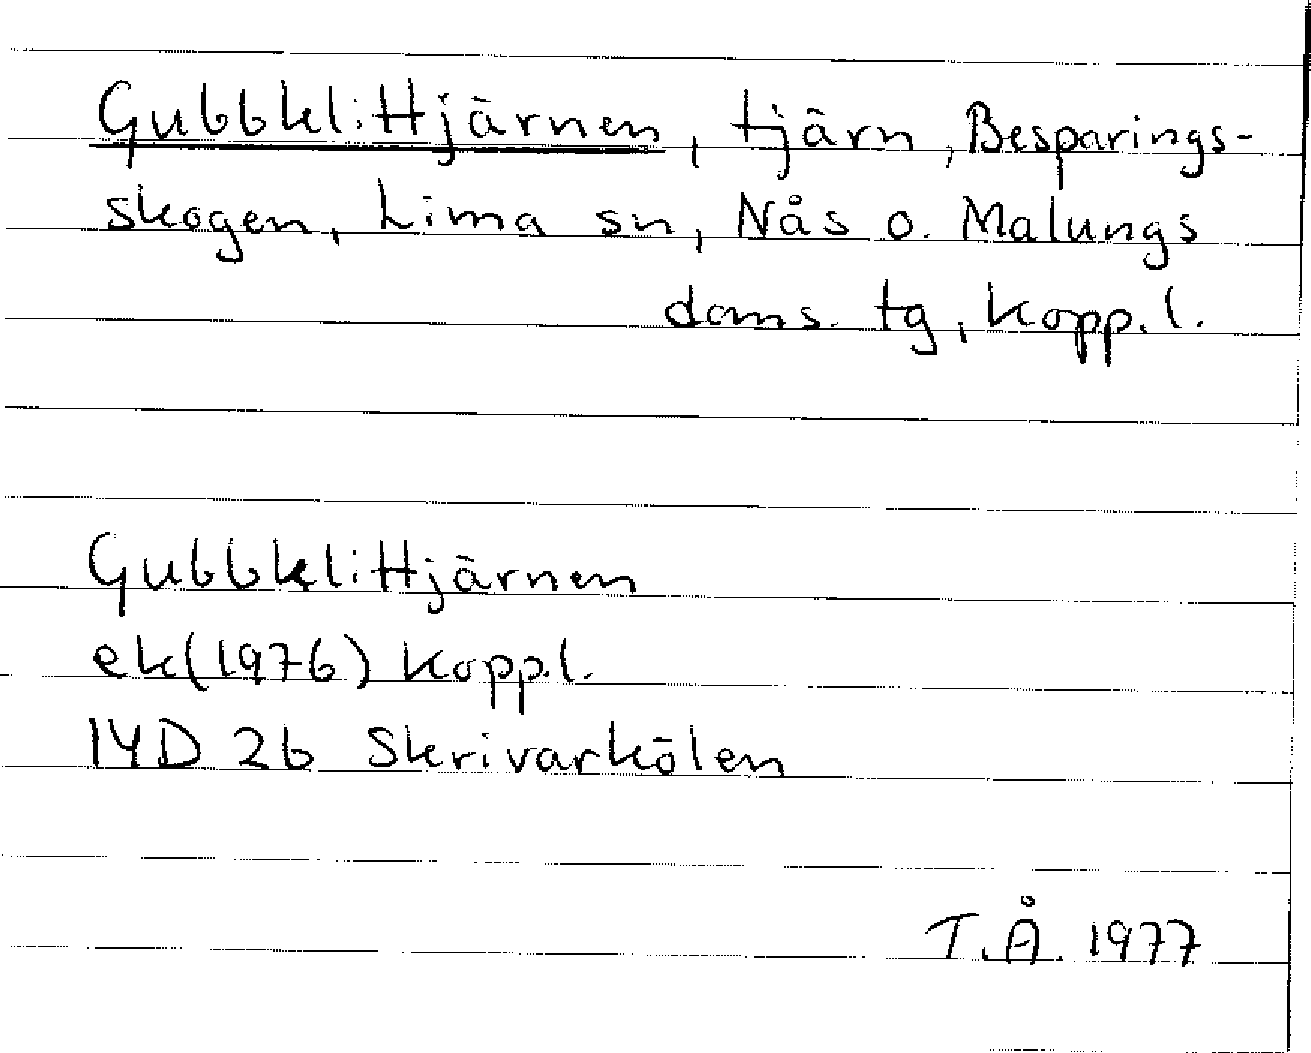 Gubbklittjärnen, tjärn, Besparings-
skogen, Lima sn, Nås o. Malungs
doms. tg, Kopp. l.
Gubbklittjärnen
ek(1976) Koppl.
14D 2b Skrivarkölen
T.Å. 1977